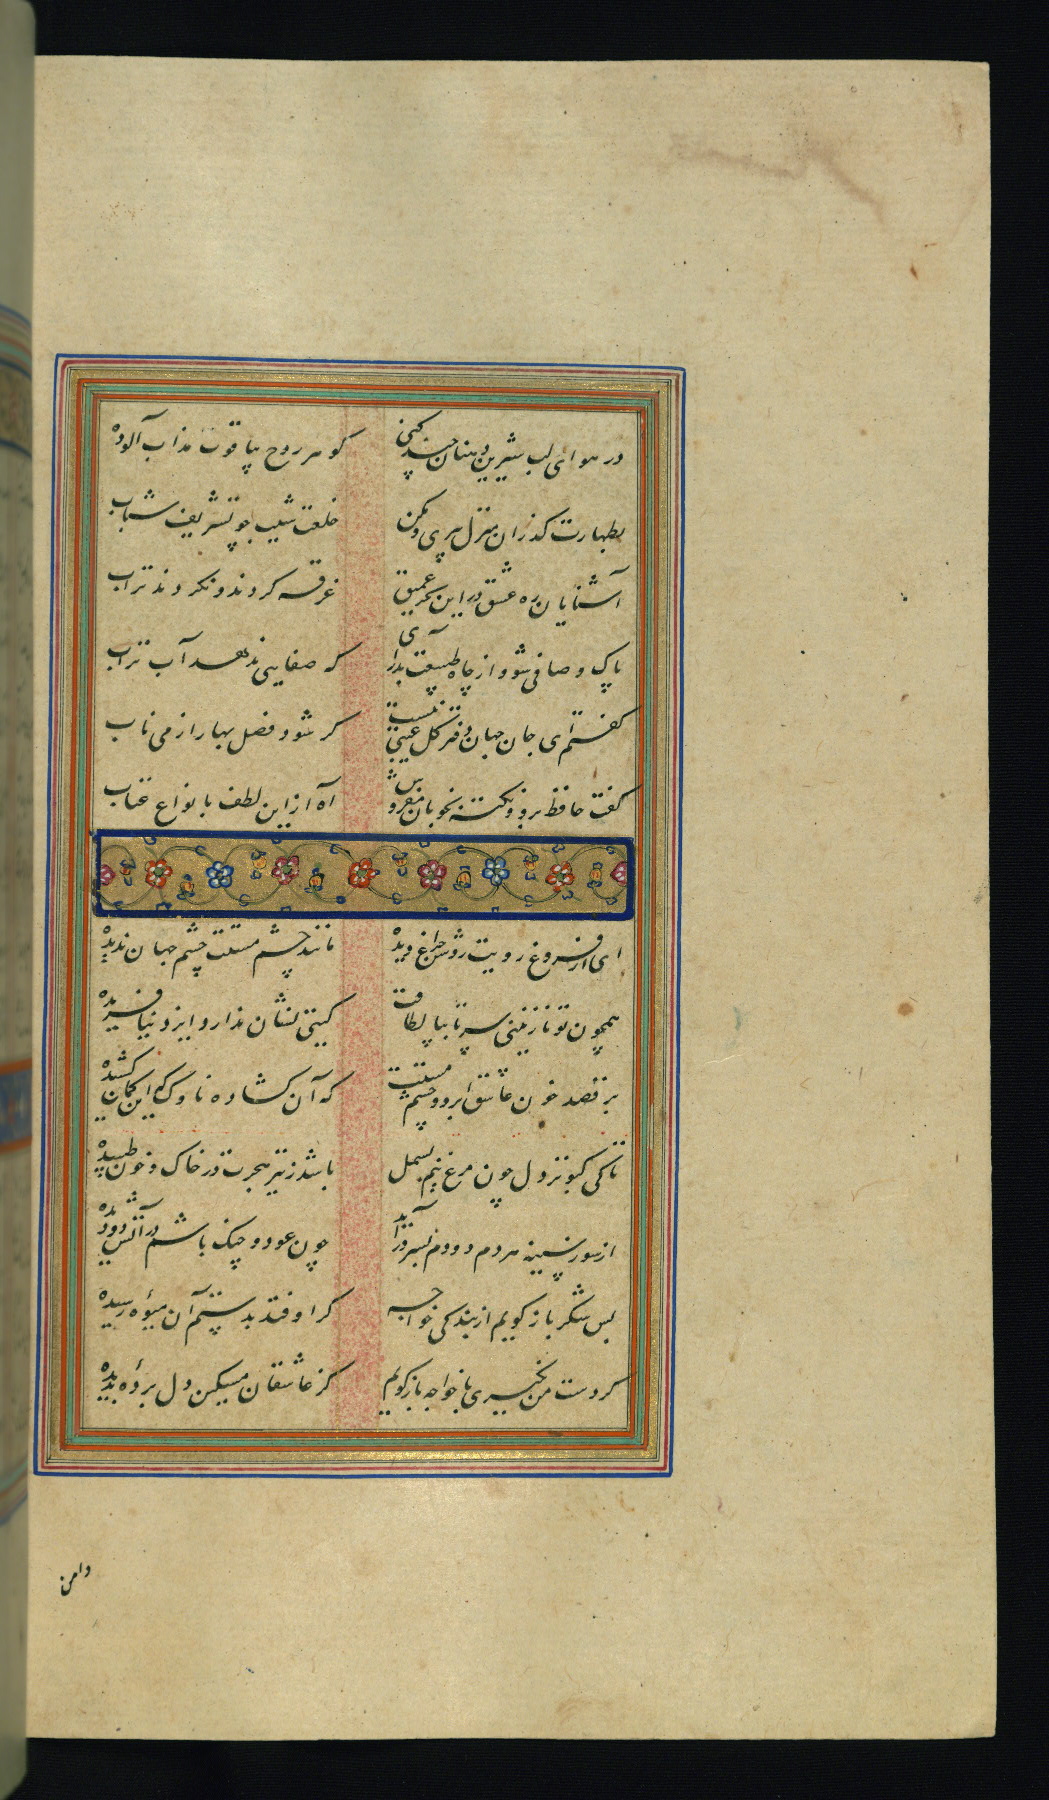 در هوای لب شیرین دهنان چند کنی گوهر روح بیاقوت مذاب آلوده
بطهارت گذران منزل پیری و مکن خلعت شیب چو تشریف شباب
آشنایان ره عشق در این بحر عمیق غرقه کردند و نکردند تراب
پاک و صافی شو و از چاه طبیعت بدر آی که صفایی ندهد آب تراب
گفتم ای جان جهان دفتر گل عیبی نیست گر شود فصل بهار از می ناب
گفت حافظ برو و نکته بخوبان مفروش آه از این لطف با نواع عتاب
ای از فروغ رویت روشن چراغ دیده مانند چشم مستت چشم جهان ندیده
همچون تو نازنینی سر تا بپا لطافت گیتی نشان ندارد ایزد نیافریده
بر قصد خون عاشق ابرو و چشم مستت که آن گشاده ناوک که این کمان کشیده
تا کی کبوتر دل چون مرغ نیم بسمل باشد ز تیر هجرت در خاک و خون طپیده
از سوز سینه هر دم دودم بسر در آید چون عود و چنگ باشم در آتش دود دیده
بس شکر باز گویم از بندگی خواجه گر اوفتد بدستم آن میوه رسیده
گر دست من نگیری با خواجه باز گویم کز عاشقان مسکین دل برده بدیده
دامن